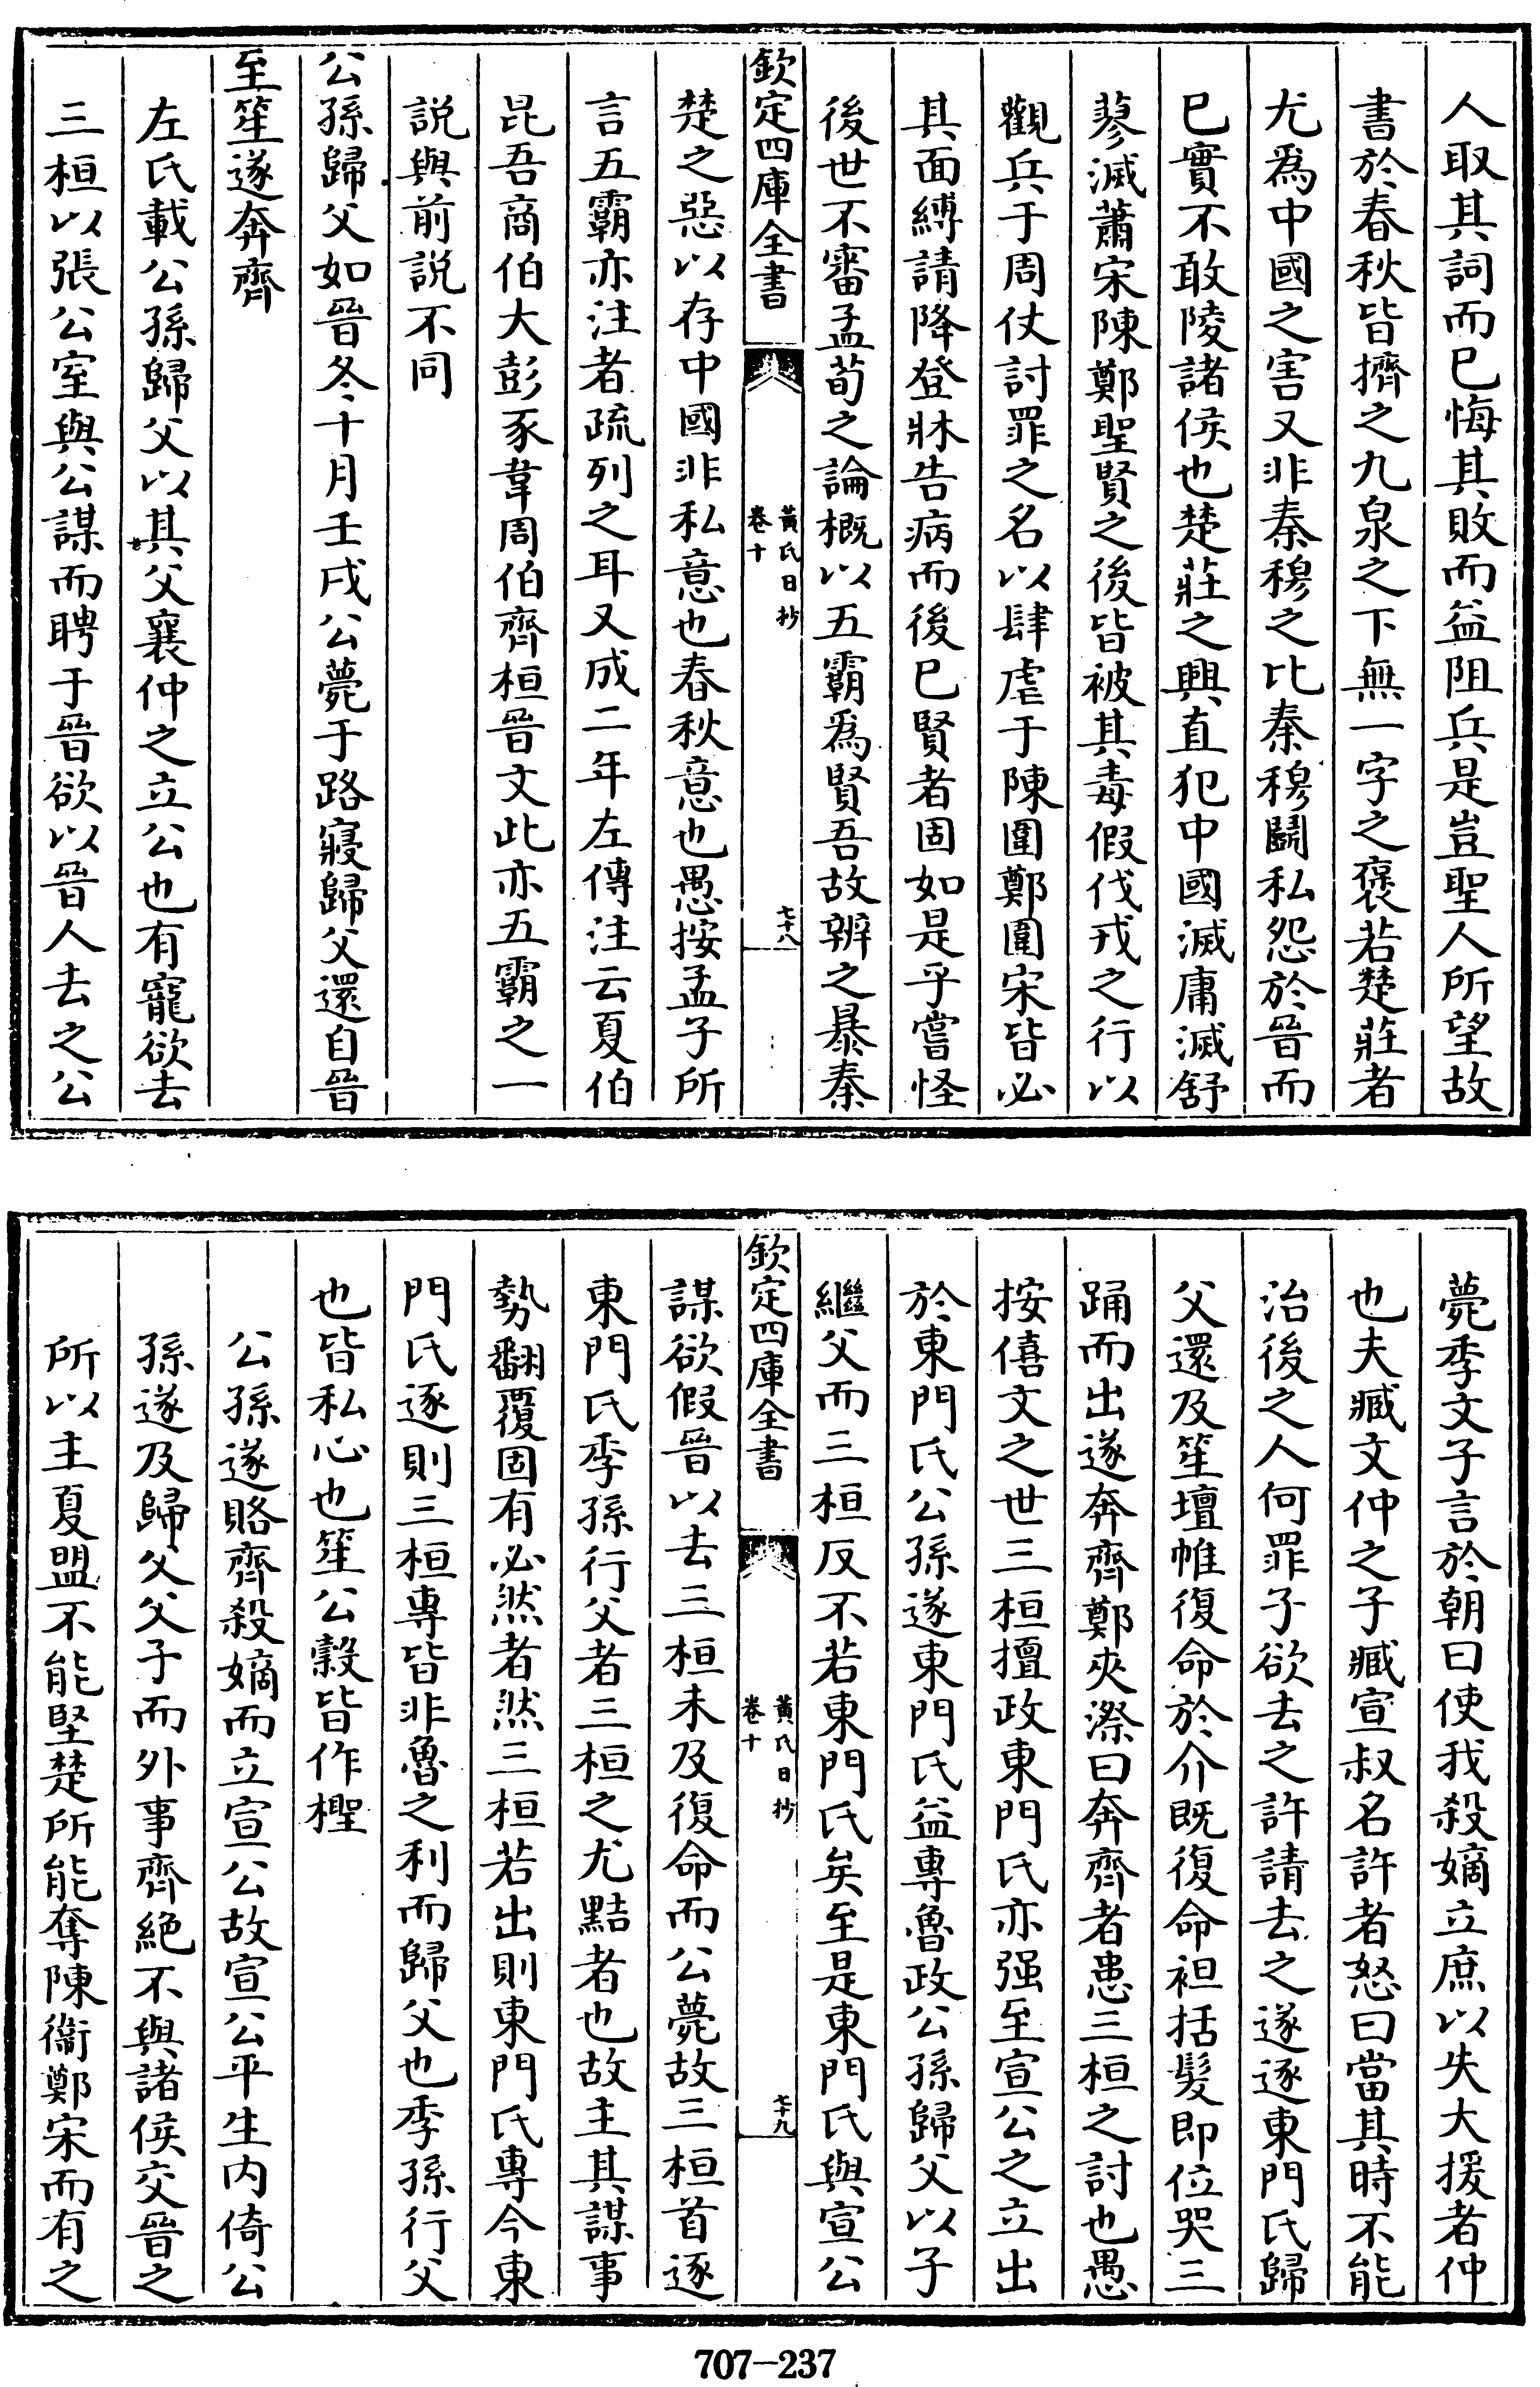 人取其詞而已悔其敗而益阻兵是豈聖人所望故
書於春秋皆擠之九泉之下無一字之褒若楚莊者
尤為中國之害又非秦穆之比秦穆鬭私怨於晉而
已實不敢陵諸侯也楚莊之興直犯中國滅庸滅舒
蓼滅蕭宋陳鄭聖賢之後皆被其毒假伐戎之行以
觀兵于周仗討罪之名以肆虐于陳圍鄭圍宋皆必
其面縛請降登牀告病而後已賢者固如是乎嘗怪
後世不審孟荀之論概以五霸為賢吾故辨之暴秦
欽定四庫全書
黃氏日抄
卷十
七十八
楚之惡以存中國非私意也春秋意也愚按孟子所
言五霸亦注者疏列之耳又成二年左傳注云夏伯
昆吾商伯大彭豕韋周伯齊桓晉文此亦五霸之一
説與前説不同
公孫歸父如晉冬十月壬戌公薨于路寢歸父還自晉
至笙遂奔齊
左氏載公孫歸父以其父襄仲之立公也有寵欲去
三桓以張公室與公謀而聘于晉欲以晉人去之公
薨季文子言於朝曰使我殺嫡立庶以失大援者仲
也夫臧文仲之子臧宣叔名許者怒曰當其時不能
治後之人何罪子欲去之許請去之遂逐東門氏歸
父還及笙壇帷復命於介既復命袒括髮即位哭三
踊而出遂奔齊鄭夾漈曰奔齊者患三桓之討也愚
按僖文之世三桓擅政東門氏亦强至宣公之立出
於東門氏公孫遂東門氏益專魯政公孫歸父以子
繼父而三桓反不若東門氏矣至是東門氏與宣公
欽定四庫全書
黃氏日抄
卷十
七十九
謀欲假晉以去三桓未及復命而公薨故三桓首逐
東門氏季孫行父者三桓之尤黠者也故主其謀事
勢翻覆固有必然者然三桓若出則東門氏專今東
門氏逐則三桓專皆非魯之利而歸父也季孫行父
也皆私心也笙公穀皆作檉
公孫遂賂齊殺嫡而立宣公故宣公平生内倚公
孫遂及歸父父子而外事齊絶不與諸侯交晉之
所以主夏盟不能堅楚所能奪陳衞鄭宋而有之
707-237